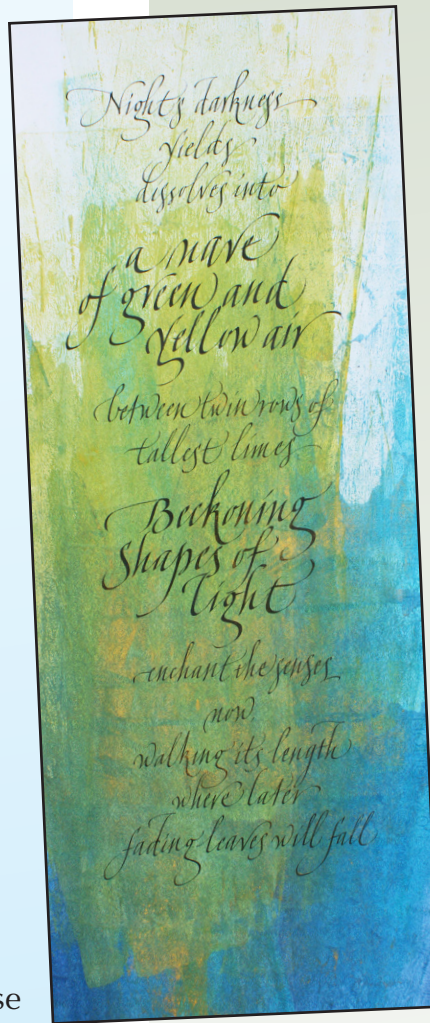 Night's darkness
yields
dissolves into
a nave
of green and
yellow air
between twin rows of
tallest limes
Beckoning
Shapes of
light
enchant the senses
now
walking its length
where later
fading leaves will fall
se